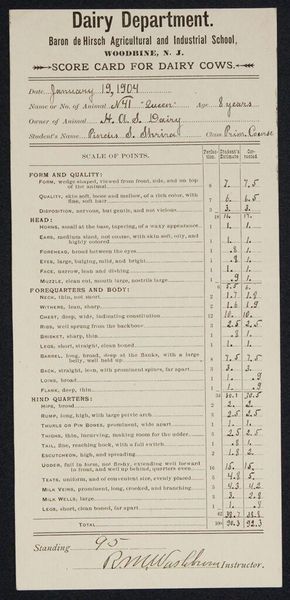 Dairy Department.
Baron de Hirsch Agricultural and Industrial School,
WOODBINE, N. J.
SCORE CARD FOR DAIRY COWS.
Date January 19, 1904
Name or No. of Animal No 41 "Queen" Age 8 years
Owner of Animal H. A. S. Dairy
Student's Name Class Prim. Course
SCALE OF POINTS. Perfection Student's Estimate Corrected
FORM AND QUALITY:
FORM, wedge shaped, viewed from front, side, and on top
of the animal 8 7. 7.5
QUALITY, skin soft, loose and mellow, of a rich color, with
fine, soft hair 7 6. 6.5
DISPOSITION, nervous, but gentle, and not vicious 3. 3.
HEAD:
HORNS, small at the base, tapering, of a waxy appearance 1 1. 1.
EARS, medium sized, not coarse, with skin soft, oily, and
highly colored 1 1. 1.
FOREHEAD, broad between the eyes 1 .8 1.
EYES, large, bulging, mild, and bright 1 .8 1.
FACE, narrow, lean and dishing 1 1. 1.
MUZZLE, clean cut, mouth large, nostrils large 1 .9 1.
FOREQUARTERS AND BODY:
NECK, thin, not short 2 1.7 1.8
WITHERS, lean, sharp 2 1.6 1.9
CHEST, deep, wide, indicating constitution 12 10. 10.
RIBS, well sprung from the backbone 3 2.5 2.5
BRISKET, sharp, thin 1 .8 1.
LEGS, short, straight, clean boned 1 1. 1.
BARREL, long, broad, deep at the flanks, with a large
belly, well held up 8 7.5 7.5
BACK, straight, lean, with prominent spines, far apart 3 3. 3.
LOINS, broad 1 1. .9
FLANK, deep, thin 1 1. .9
HIND QUARTERS:
HIPS, broad 2 2. 2.
RUMP, long, high, with large pelvic arch 3 2.5 2.5
THURLS OR PIN BONES, prominent, wide apart 1 1. 1.
THIGHS, thin, incurving, making room for the udder 3 2.5 2.5
TAIL, fine, reaching hock, with a full switch 1 .8 1.
ESCUTCHEON, high, and spreading 2 1.8 2.
UDDER, full in form, not fleshy, extending well forward
in front, and well up behind, being elastic 16 15. 15.
TEATS, uniform, and of convenient size, evenly placed 5 4.8 5.
MILK VEINS, prominent, long, crooked, and branching 5 4.5 4.2
MILK WELLS, large 3 3. 2.8
LEGS, short, clean boned, far apart 1 1. .8
TOTAL 100 90.3 92.3
Standing 95
R M Washburn Instructor.